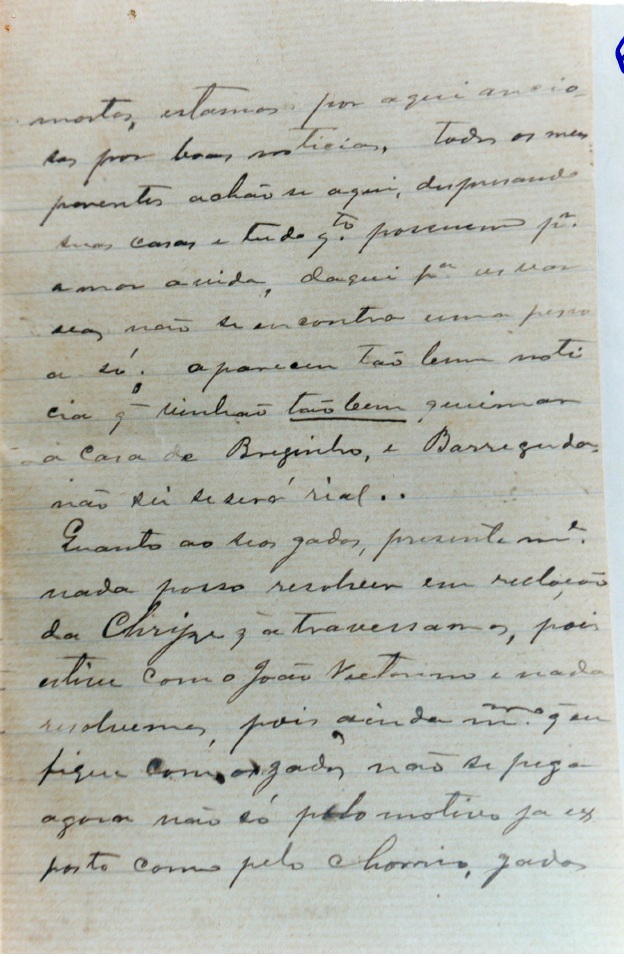 mortos, estamos por aqui ancio-
sos por boas noticias. Todos os meus
parentes achão se aqui, despresando
suas casas e tudo q.to possuem p.r
amor a vida, daqui p.a
não se encontra uma pesso
a só; apareceu tão bem noti
cia q̃ vinhão tão bem queimar
a casa de Breginho, e Barreguda,
não sei se será rial..
Quanto ao seos gados, presente m.te
nada posso resolver em reclação
da Chrize q̃ atravessamos, pois
estive com o João Victorino e nada
resolvemos, pois ainda m.mo q̃ eu
fique com os gados não se pega
agora não só pelo motivo ja ex
posto como pelo chonio, gados